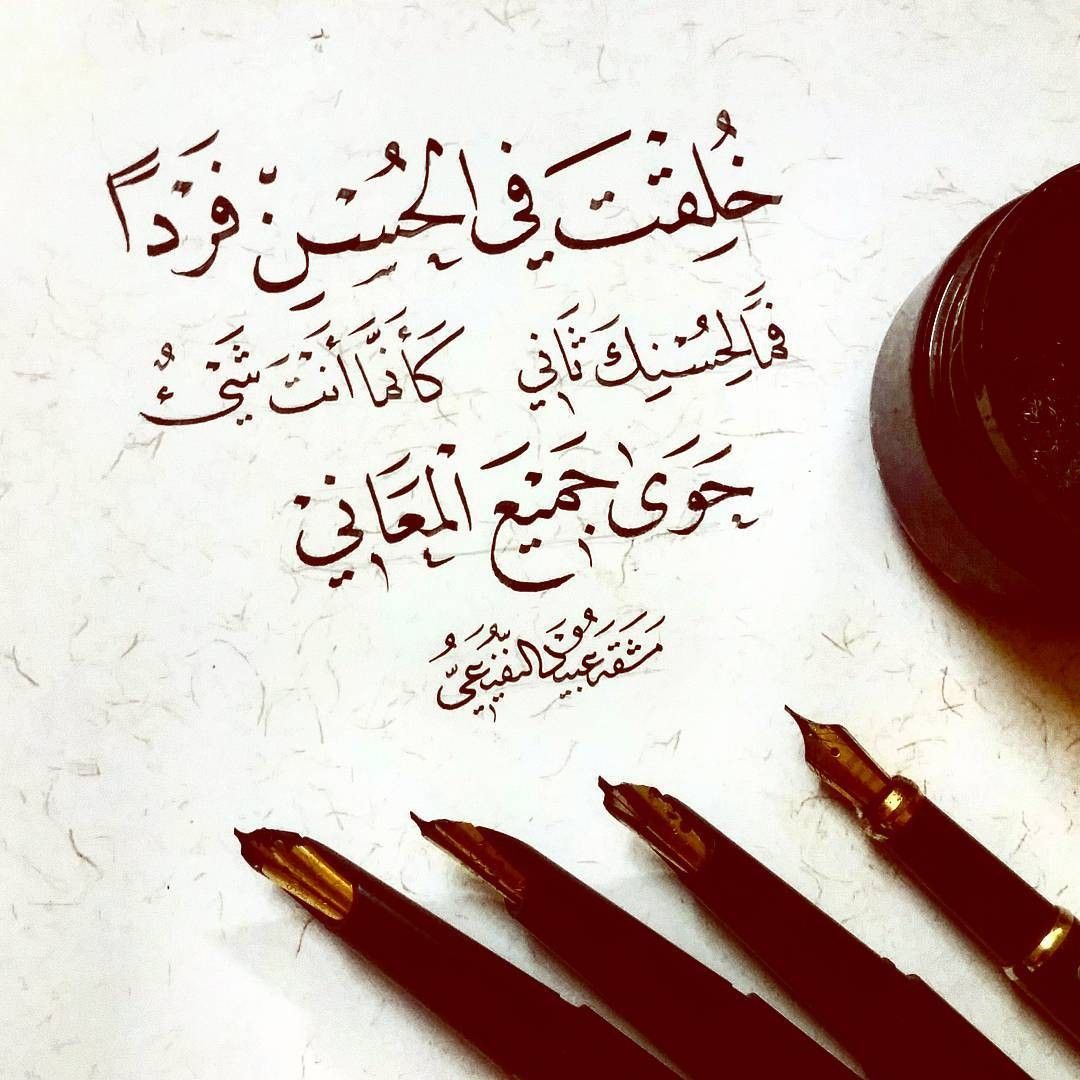 خُلِقْتَ في الحُسْنِ فَرْداً
فَمَا لِحُسْنِكَ ثَاني كَأَنَّمَا أَنْتَ شَيْءٌ
حَوَى جَمِيْعَ الْمَعَاني
مَشَقَهُ عَبيد النفيعي